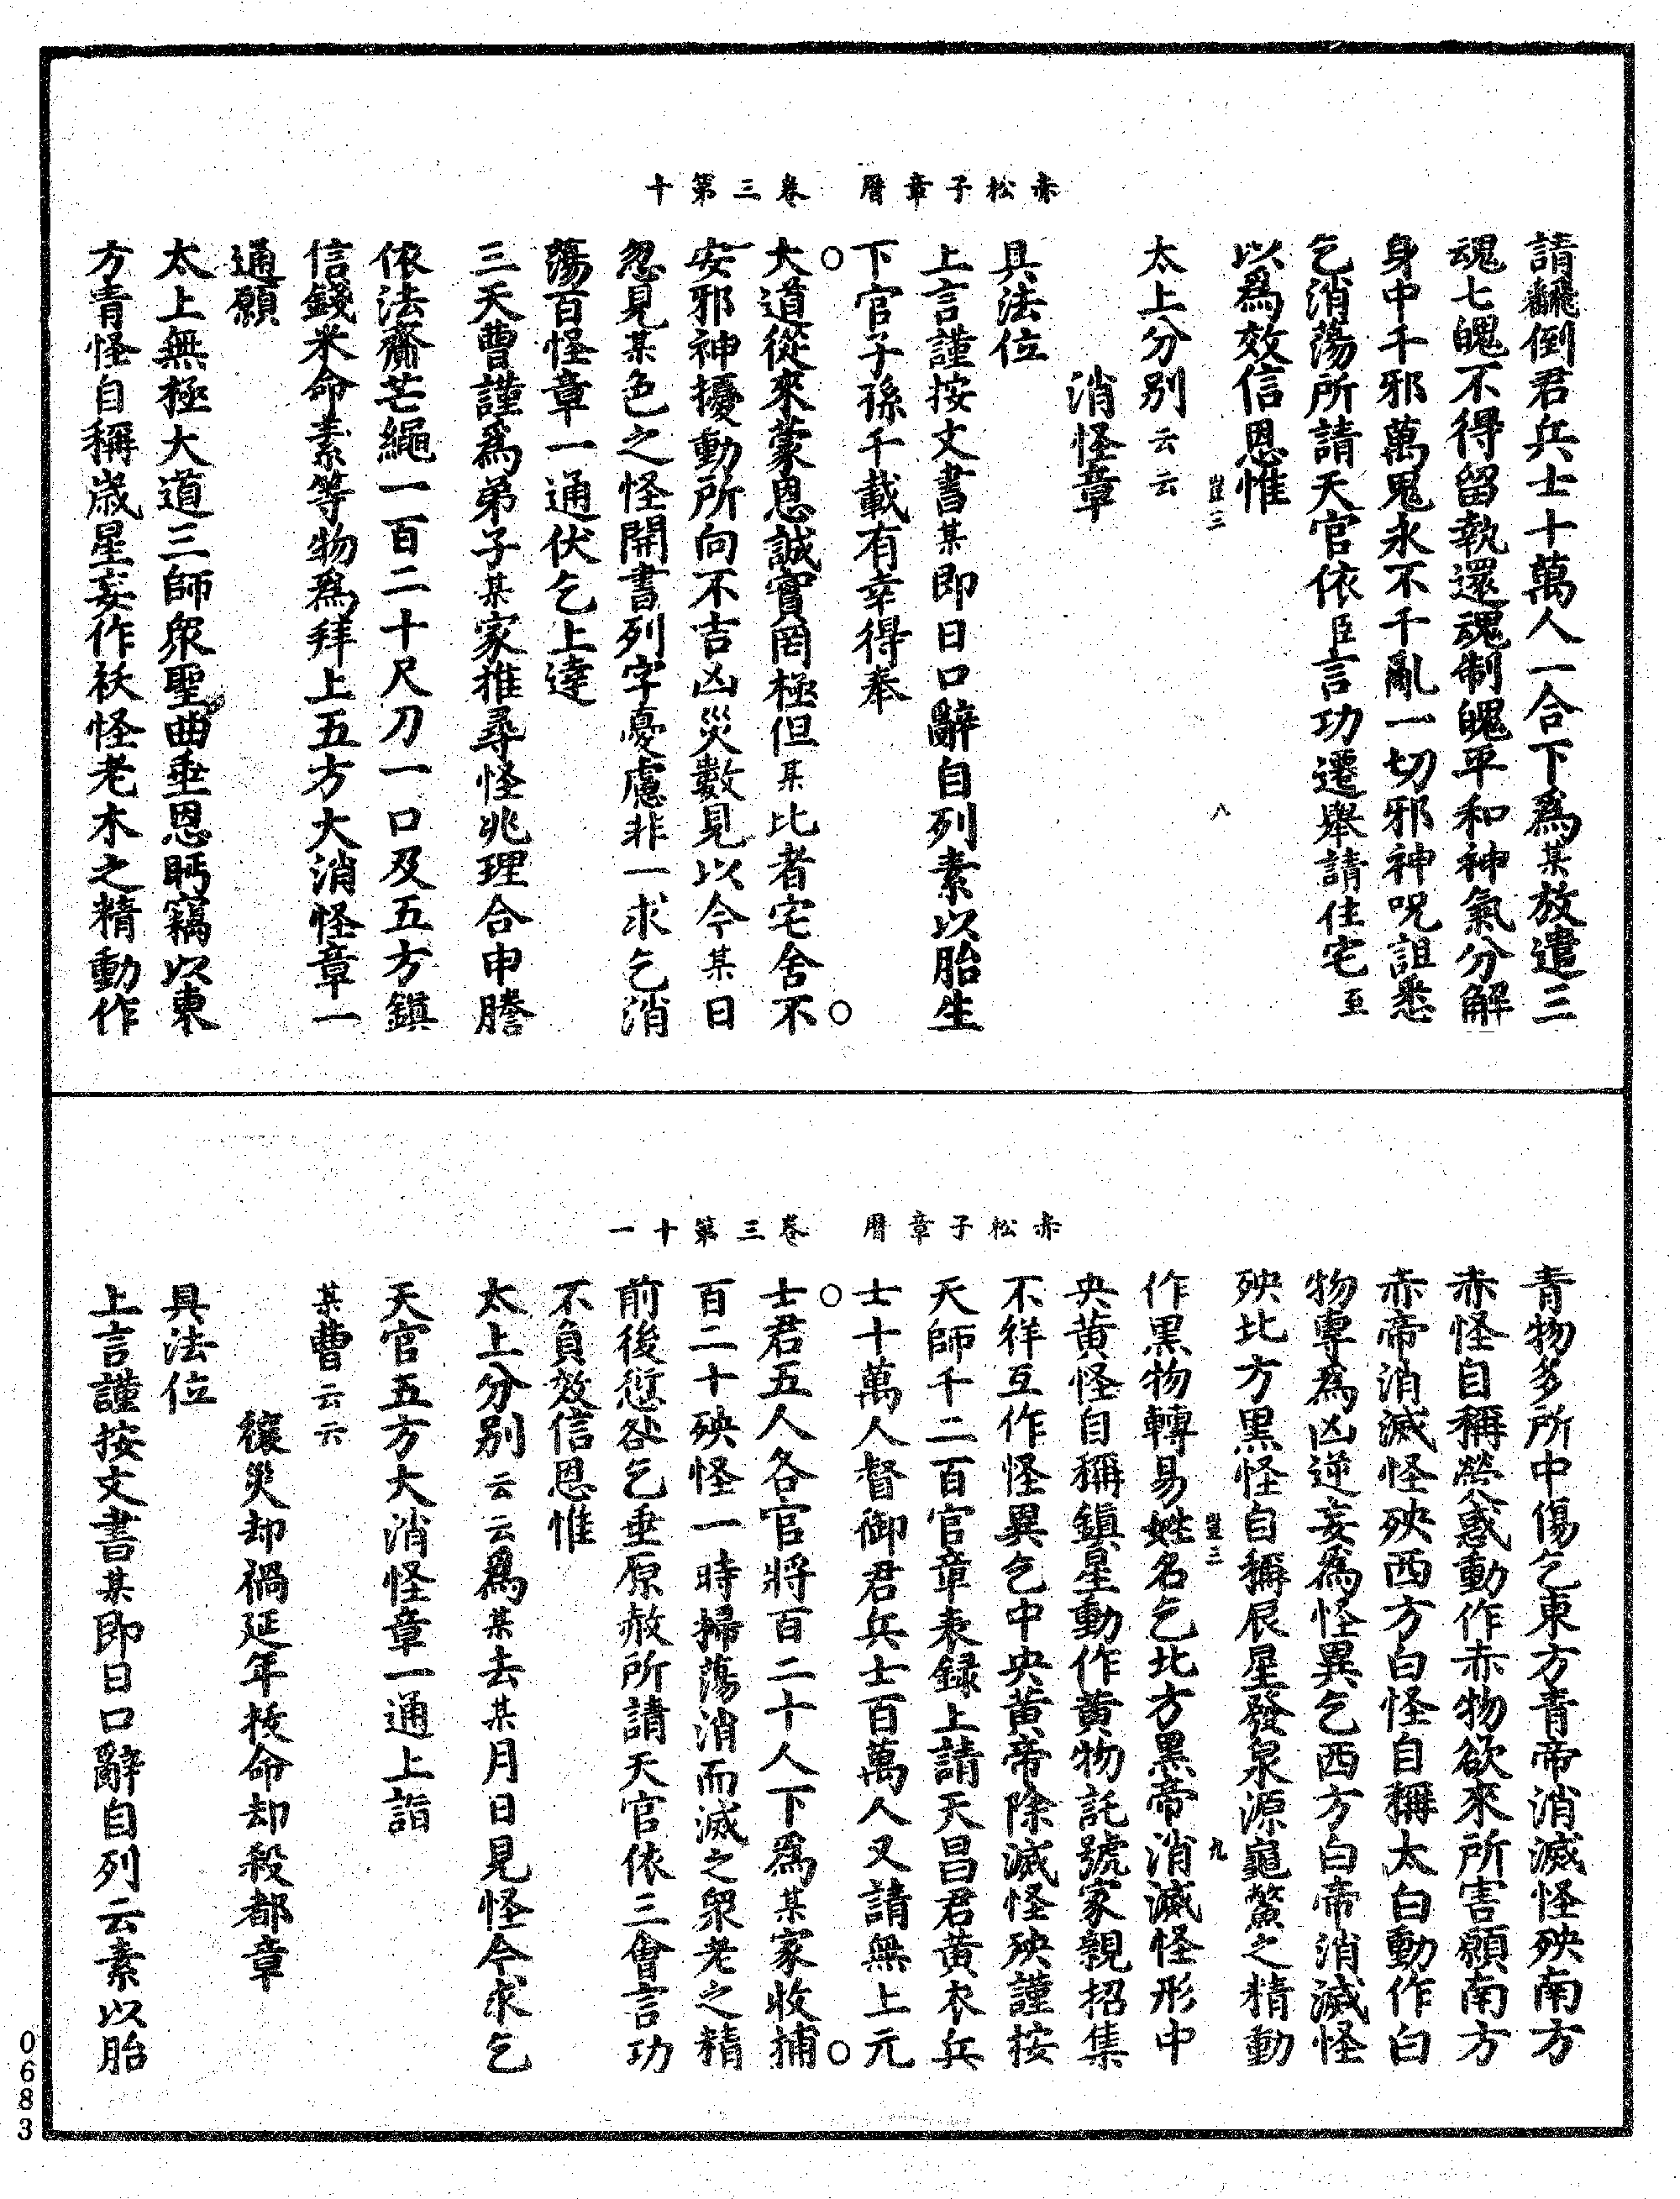 赤松子章曆　卷三第十
請飜倒君兵士十萬人一合下爲某放遣三
魂七魄不得留執還魂制魄平和神氣分解
身中千邪萬鬼永不干亂一切邪神呪詛悉
乞消蕩所請天官依臣言功遷舉請住宅至
以爲效信恩惟
豈二　八
太上分別云云
消怪章
具法位
上言謹按文書某即日口辭自列素以胎生
下官子孫千載有幸得奉
大道從來蒙恩誠實罔極但某比者宅舍不
安邪神擾動所向不吉凶災數見以今某日
忽見某色之怪開書列字憂慮非一求乞消
蕩百怪章一通伏乞上達
三天曹謹爲弟子某家推尋怪兆理合申謄
依法齋芒繩一百二十尺刀一口及五方鎮
信錢米命素等物爲拜上五方大消怪章一
通願
太上無極大道三師衆聖曲垂恩眄竊以東
方青怪自稱歲星妄作祅怪老木之精動作
赤松子章曆　卷三第十一
青物多所中傷乞東方青帝消滅怪殃南方
赤怪自稱熒惑動作赤物欲來所害願南方
赤帝消滅怪殃西方白怪自稱太白動作白
物專爲凶逆妄爲怪異乞西方白帝消滅怪
殃北方黑怪自稱辰星發泉源龜鱉之精動
豈三　九
作黑物轉易姓名乞北方黑帝消滅怪形中
央黃怪自稱鎮星動作黃物託號家親招集
不祥互作怪異乞中央黃帝除滅怪殃謹按
天師千二百官章表録上請天昌君黃衣兵
士十萬人督御君兵士百萬人又請無上元
士君五人各官將百二十人下爲某家收捕
百二十殃怪一時掃蕩消而滅之衆老之精
前後愆咎乞垂原赦所請天官依三會言功
不負效信恩惟
太上分別云云爲某去某月日見怪今求乞
天官五方大消怪章一通上詣
某曹云云
禳災却禍延年拔命却殺都章
具法位
上言謹按文書某即日口辭自列云素以胎
0683